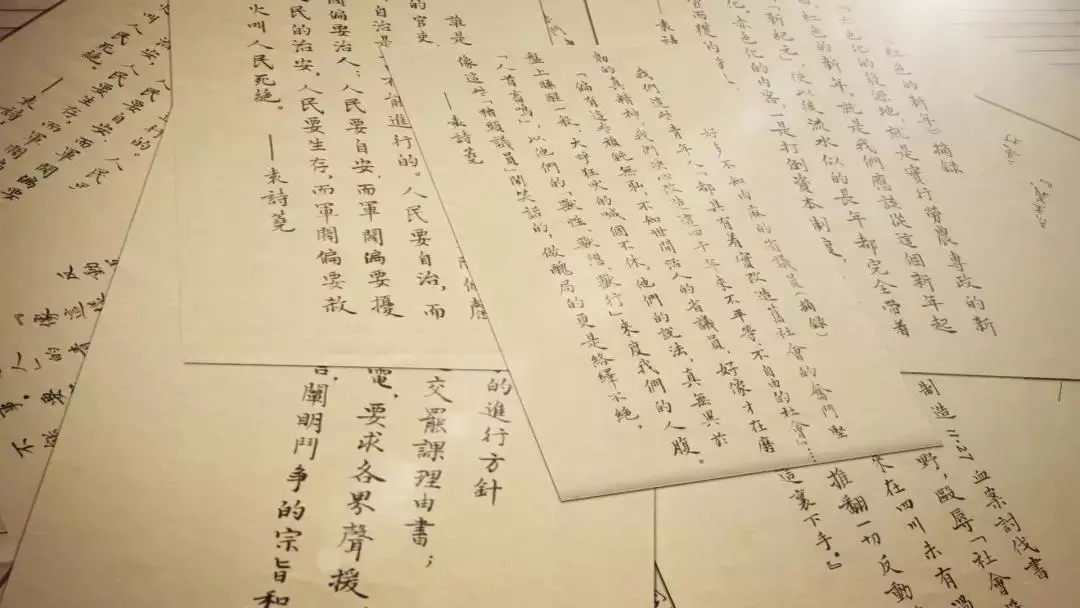 紅色的新年》摘錄
色化的發源地,就是實行勞農專政的新
紅色的新年,就是我們應該從這個新年起
「新紀元」,使以後流水似的長年都完全帶着
化、赤色化的內容,一是打倒資本制度,
——袁詩
好多不知肉麻的省議員(摘錄)
我們這些青年人「都具有着實改造舊社會的奮鬥堅
韌的真精神,我們決心改造這四千年來不平等、不自由的社會」……
偏有這些靦顏無恥,不知世間活人的省議員,好像才在磨
盤上睡醒一般,大呼狂火的喊個不休。他們的說法,真無異於
「人首畜鳴」,以他們的「獸性、獸想、獸行」來度我們的人腹。
像這些「豬頭議員」鬧笑話的,做醜局的更是絡繹不絕,
——袁詩蕘
誰是
的官吏
自治是
不能進行的。人民要自治,而
閥偏要治人;人民要自安,而軍閥偏要擾
民的治安,人民要生存,而軍閥偏要放
火叫人民死絕。
——袁詩蕘
的。
治安,人民要自安,人民
要生存,而軍閥偏要
死絕。
——袁詩
的進行方針
交罷課理由書;
電,要求各界聲援
闡明鬥爭的宗旨和
製造
血案討伐書
野,毆辱「社會
來在四川未有
推翻一切反動
這裏下手。』